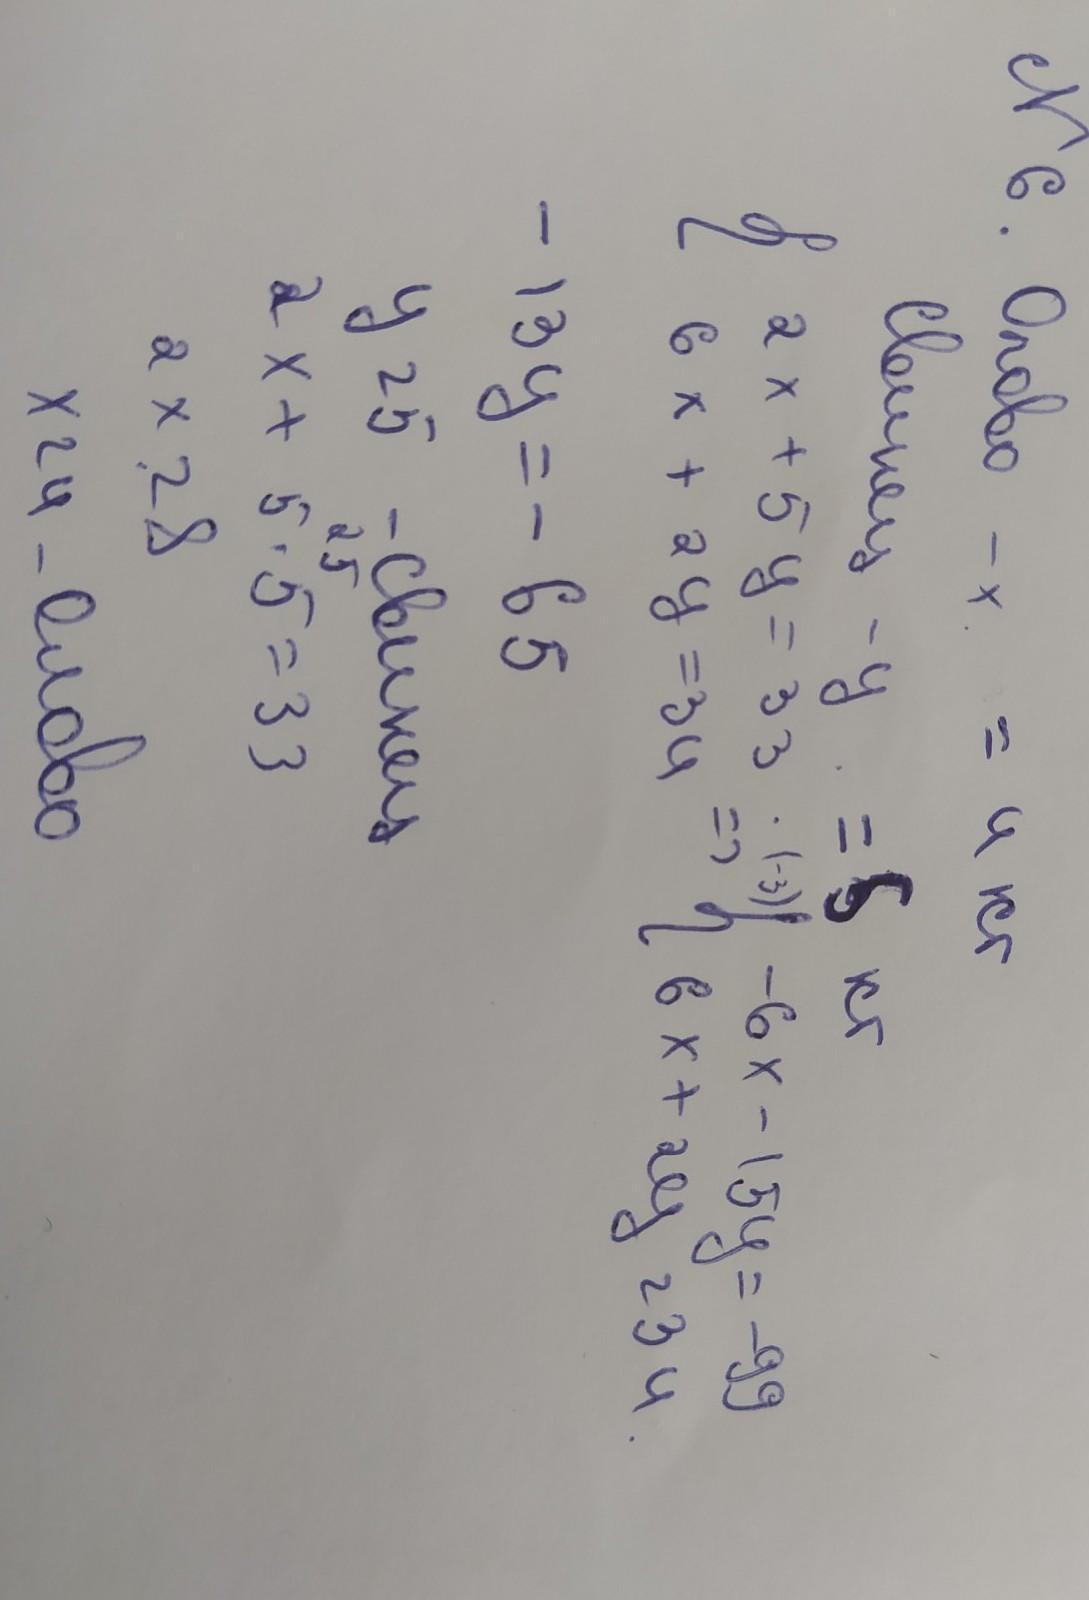 № 6. Олово - x. = 4 кг
Свинец - y. = 5 кг
{ 2x + 5y = 33 · (-3)
{ 6x + 2y = 34 =>
{ -6x - 15y = -99
{ 6x + 2y = 34.
-13y = -65
y = 5 - Свинец
25
2x + 5·5 = 33
2x = 8
x = 4 - Олово